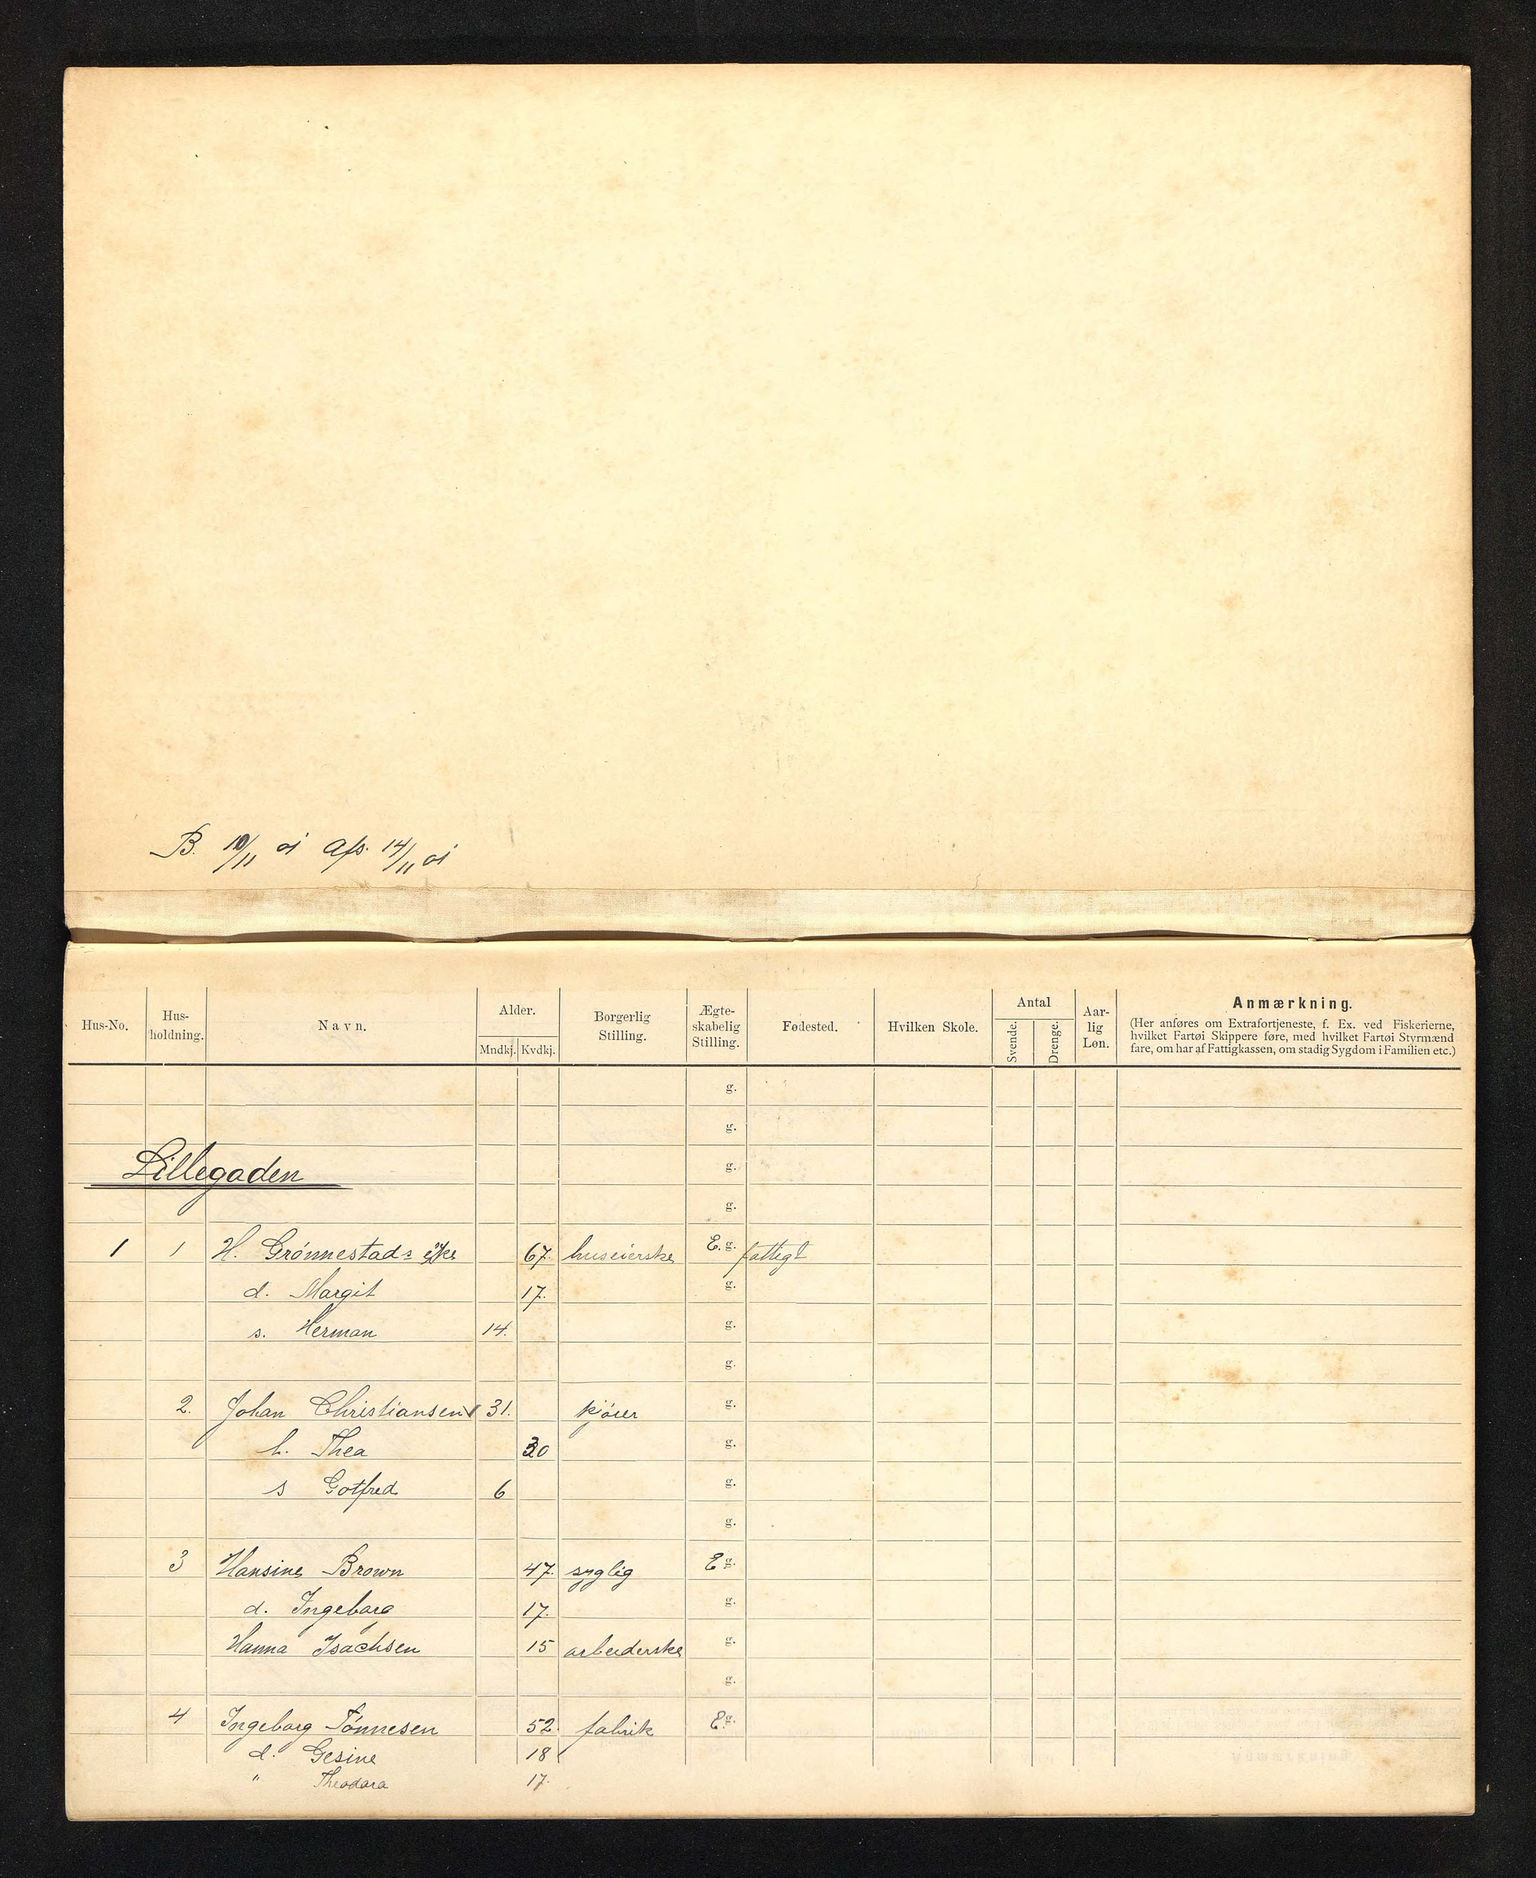 B. 10/11 01 Afs. 14/11 01
Hus-No. Hus-holdning. Navn. Alder. Mndkj. Kvdkj. Borgerlig Stilling. Ægte-skabelig Stilling. Fødested. Hvilken Skole. Antal Svende. Drenge. Aar-lig Løn. Anmærkning.
(Her anføres om Extrafortjeneste, f. Ex. ved Fiskerierne,
hvilket Fartøi Skippere føre, med hvilket Fartøi Styrmænd
fare, om har af Fattigkassen, om stadig Sygdom i Familien etc.)
g.
g.
Lillegaden g.
g.
1 1 H. Grønnestads 67. huseierske E. g. fattigt
d. Margit 17. g.
s. Herman 14. g.
g.
2. Johan Christiansen 31. kjører g.
h. Thea 30 g.
s Gotfred 6 g.
g.
3 Hansine Brown 47. syglig E g.
d. Ingeborg 17. g.
Hanna Isachsen 15 arbeiderske g.
g.
4 Ingeborg Tønnesen 52. fabrik E g.
d. Gesine 18
" Theodora 17.